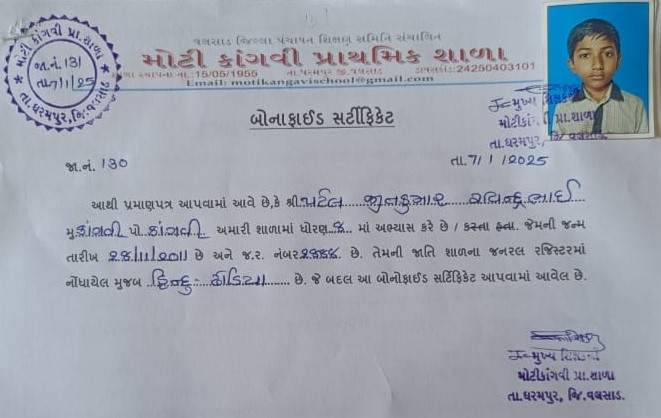 વલસાડ જિલ્લા પંચાયત શિક્ષણ સમિતિ સંચાલિત
મોટી કાંગવી પ્રાથમિક શાળા
સ્થાપના તા.:15/05/1955 તા.ધરમપુર જી.વલસાડ ડાયસકોડ:24250403101
Email: motikangavischool@gmail.com
મોટી કાંગવી પ્રા.શાળા
જા.નં. 131
તા.7/1/25
તા.ધરમપુર, જિ.વલસાડ
મુખ્ય
મોટીકાંગવી પ્રા.શાળા
તા.ધરમપુર, જિ.વલસાડ
બોનાફાઈડ સર્ટીફિકેટ
જા.નં. 130 તા.7/1/2025
આથી પ્રમાણપત્ર આપવામાં આવે છે,કે શ્રી.પટેલ
મુ.કાંગવી પો.કાંગવી અમારી શાળામાં ધોરણ માં અભ્યાસ કરે છે / કરતા હતા. જેમની જન્મ
તારીખ 28/11/2011 છે અને જ.ર. નંબર છે. તેમની જાતિ શાળના જનરલ રજિસ્ટરમાં
નોંધાયેલ મુજબ ..હિન્દુ-ધોડિયા છે. જે બદલ આ બોનોફાઈડ સર્ટિફિકેટ આપવામાં આવેલ છે.
મુખ્ય
મોટીકાંગવી પ્રા.શાળા
તા.ધરમપુર, જિ.વલસાડ.